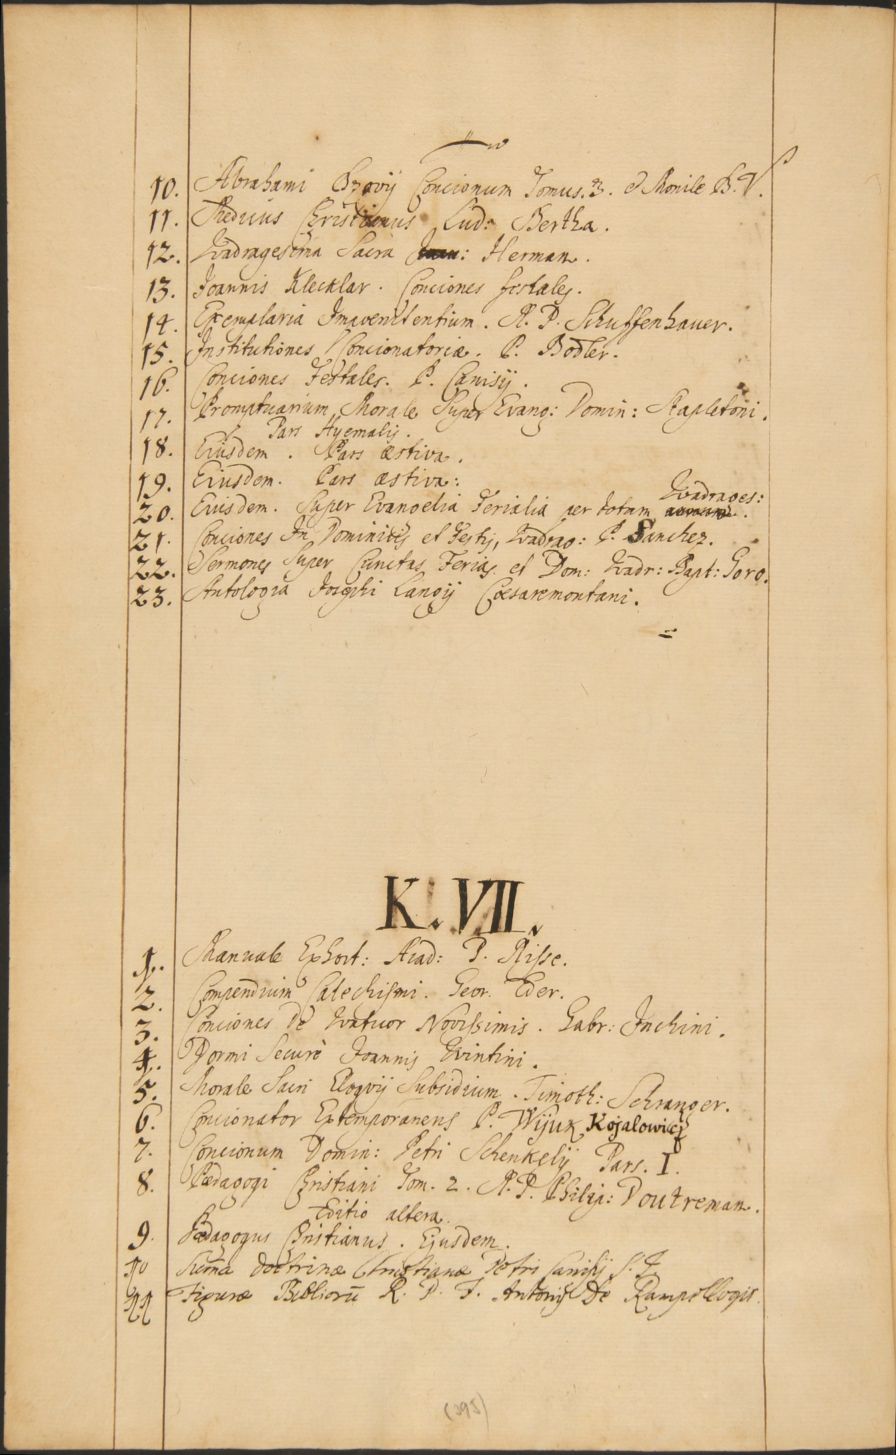 10. Abrahami Bzovij Concionum Tomus. 3. et Monile B. V.
11. Christianus Lud: Bertha.
12. Quadragesima Sacra Herman.
13. Joannis Klecklar. Conciones festales.
14. Exemplaria Impoenitentium. A. P. Schuffenhauer.
15. Institutiones Concionatoriæ. P. Bodler.
16. Conciones Festales. P. Canisij.
17. Promptuarium Morale Super Evang: Domin: Stapletoni.
Pars Hyemalis.
18. Eiusdem. Pars æstiva.
19. Eiusdem. Pars æstiva:
Quadrages:
20. Eiusdem. Super Evangelia Ferialia per totum
21. Conciones In Dominicis et Festis, Quadrag: P. Sanchez.
22. Sermones Super Cunctas Ferias et Dom: Quadr: Bapt: Goro.
23. Antologia Josephi Langij Cæsaremontani.
K. VII.
1. Manuale Exhort: Acad: P. Risse.
2. Compendium Catechismi. Geor. Eder.
3. Conciones De Quatuor Novissimis. Gabr: Inchini.
4. Dormi Securè Joannis Quintini.
5. Morale Sacri Eloqvij Subsidium. Timoth: Schranger.
6. Concionator Extemporaneus P. Wijuk Kojalowicz
7. Concionum Domin: Petri Schenkelij Pars. I.
8. Pædagogi Christiani Tom. 2. A. P. Philip: Doutreman.
Editio altera.
9. Pædagogus Christianus. Ejusdem.
10 Suma doctrinæ Christianæ Petri Canisij S. J.
11 Figuræ Bibliorū R. P. F. Antonij De Rampelogis.